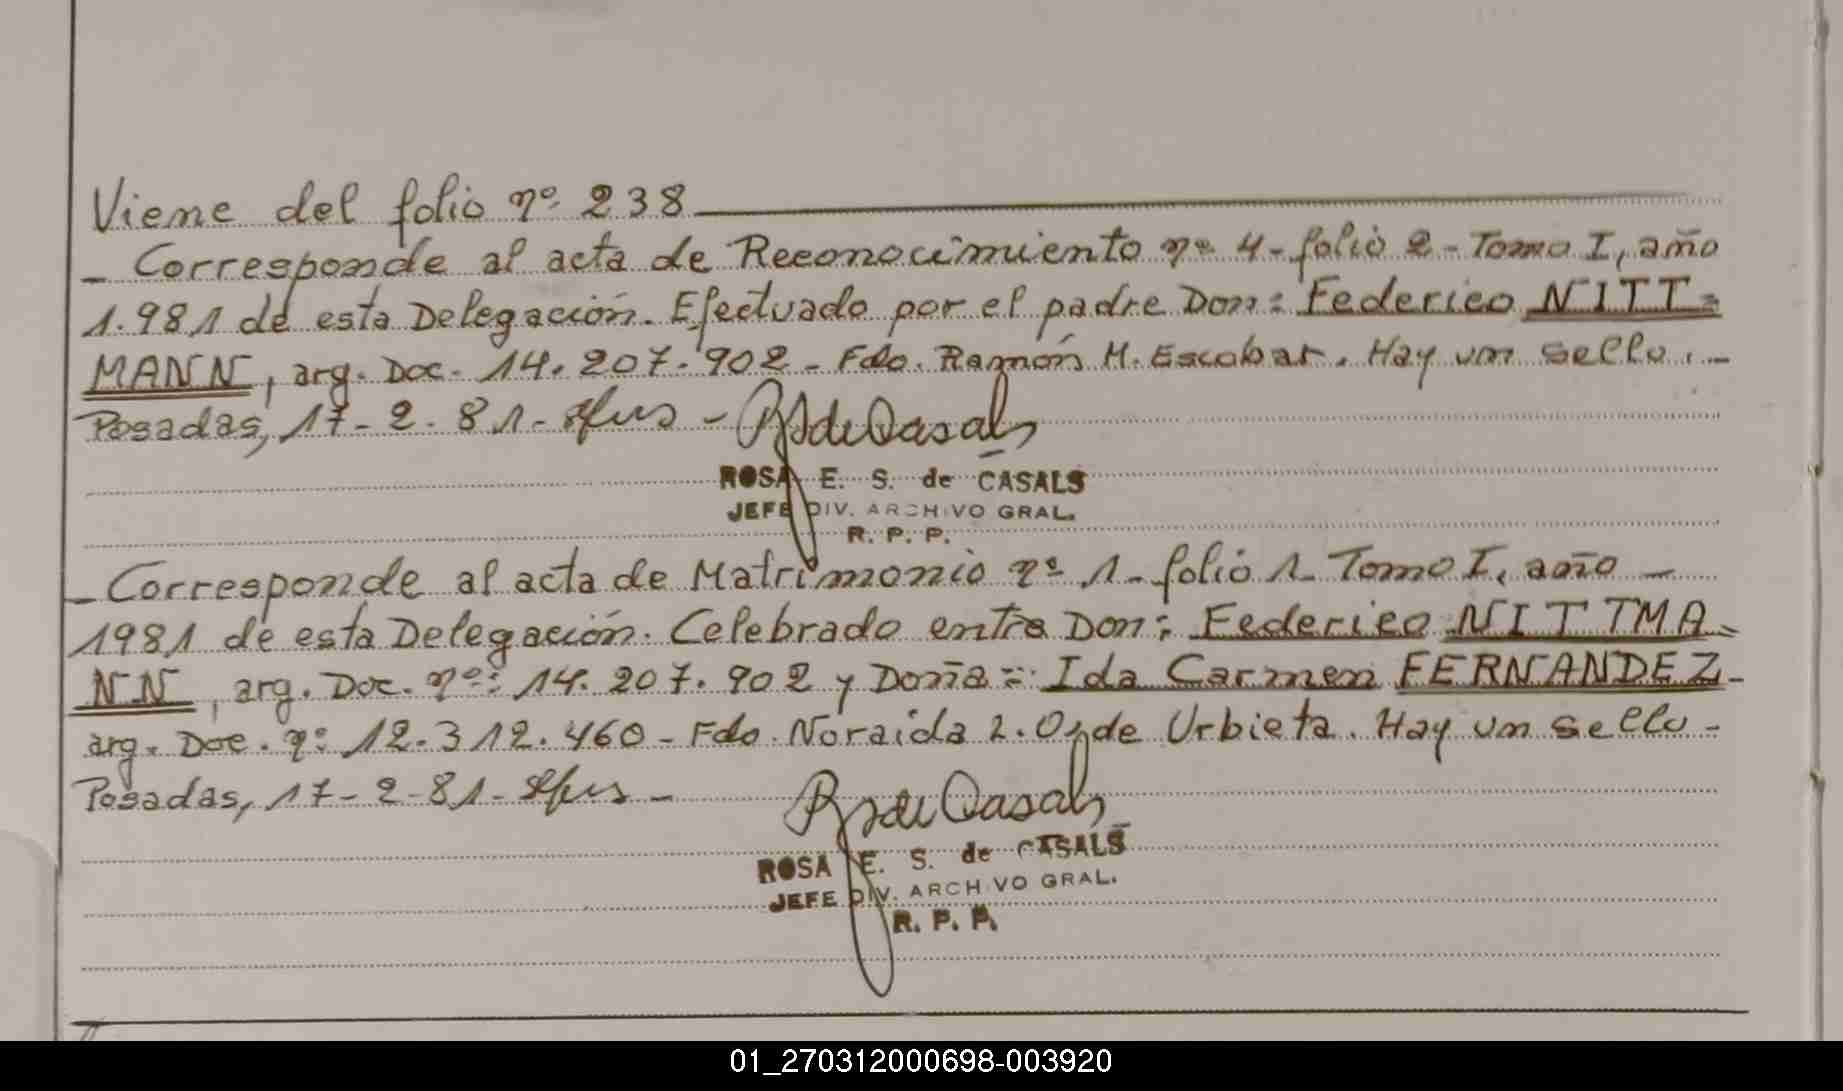 Viene del folio nº 238
- Corresponde al acta de Reconocimiento nº 4 - folio 2 - Tomo I, año
1.981 de esta Delegación. Efectuado por el padre Don: Federico NITT=
MANN, arg. Doc. 14.207.902 - Fdo. Ramón M. Escobar. Hay un sello. -
Posadas, 17-2-81-
ROSA E. S. de CASALS
JEFE DIV. ARCHIVO GRAL.
R. P. P.
- Corresponde al acta de Matrimonio nº 1 - folio 1 - Tomo I, año -
1981 de esta Delegación. Celebrado entre Don: Federico NITTMA=
NN, arg. Doc. nº: 14.207.902 y Doña = Ida Carmen FERNANDEZ -
arg. Doc. nº 12.312.460 - Fdo. Noraida de Urbieta. Hay un sello -
Posadas, 17-2-81-
ROSA E. S. de CASALS
JEFE DIV. ARCHIVO GRAL.
R. P. P.
01_270312000698-003920